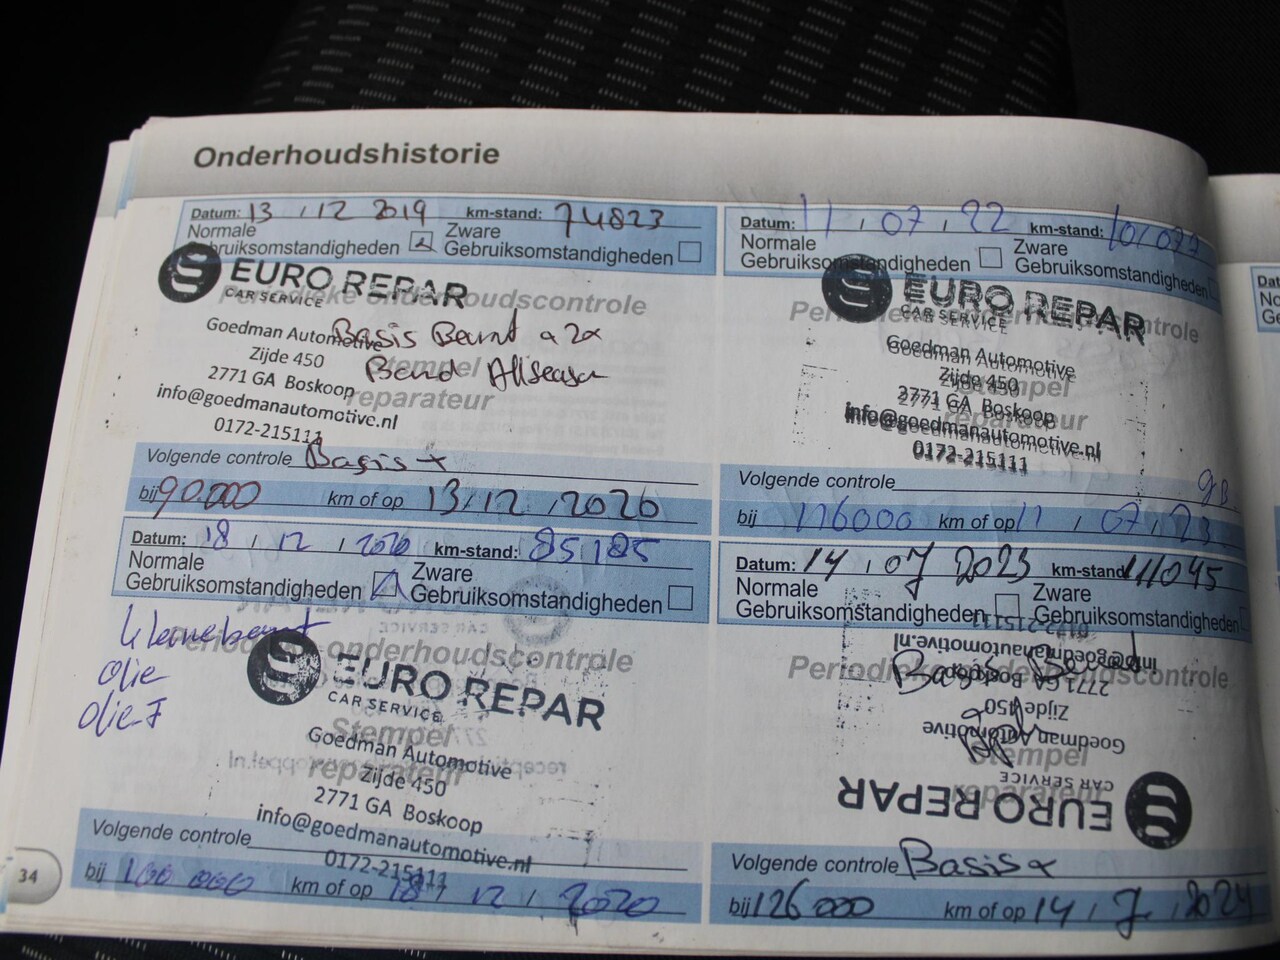 Onderhoudshistorie
Datum: 13 / 12 2019 km-stand: 74823
Normale Gebruiksomstandigheden Zware Gebruiksomstandigheden
EURO REPAR
CAR SERVICE
Periodieke onderhoudscontrole
Goedman Automotive
Zijde 450
2771 GA Boskoop
info@goedmanautomotive.nl
0172-215111
Basis Beurt a 2x
Band Allseason
Stempel
reparateur
Volgende controle Basis +
bij 90.000 km of op 13/12/2020
Datum: 18 / 12 / 2020 km-stand: 85185
Normale Gebruiksomstandigheden Zware Gebruiksomstandigheden
kleine beurt
olie
olie F
Periodieke onderhoudscontrole
EURO REPAR
CAR SERVICE
Stempel
reparateur
Goedman Automotive
Zijde 450
2771 GA Boskoop
info@goedmanautomotive.nl
0172-215111
Volgende controle
bij 100 000 km of op 18 / 12 / 2020
34
Datum: 11 / 07 / 22 km-stand:
Normale Gebruiksomstandigheden Zware Gebruiksomstandigheden
EURO REPAR
CAR SERVICE
Periodieke onderhoudscontrole
Goedman Automotive
Zijde 450
2771 GA Boskoop
info@goedmanautomotive.nl
0172-215111
Stempel
reparateur
Volgende controle
bij 116000 km of op 11 / 07 / 23
Datum: 14 / 07 2023 km-stand 111045
Normale Gebruiksomstandigheden Zware Gebruiksomstandigheden
0172-215111
info@goedmanautomotive.nl
Periodieke onderhoudscontrole
Basis
2771 GA Boskoop
Zijde 450
Goedman Automotive
Stempel
reparateur
CAR SERVICE
EURO REPAR
Volgende controle Basis +
bij 126 000 km of op 14 / 7 / 2024